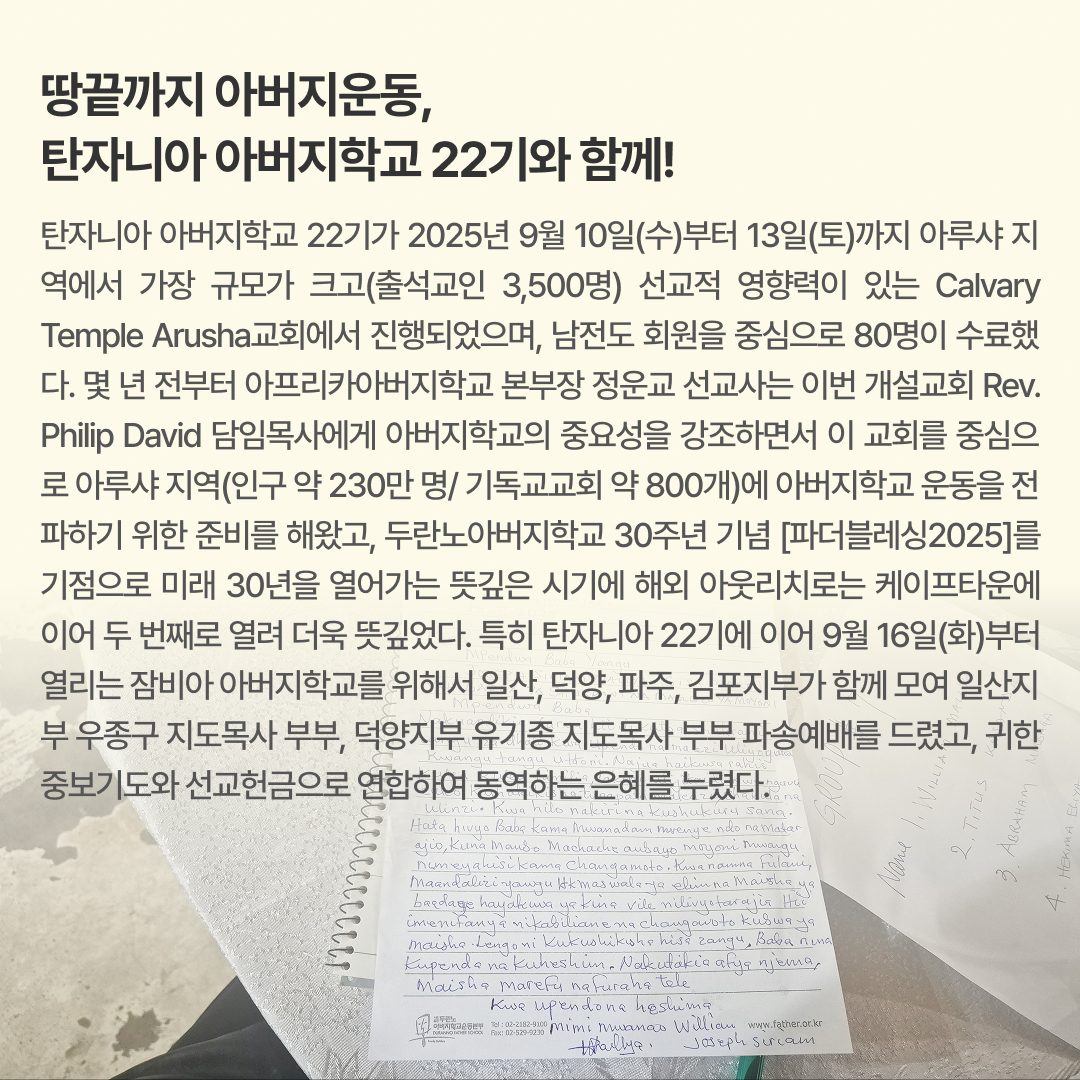 땅끝까지 아버지운동,
탄자니아 아버지학교 22기와 함께!
탄자니아 아버지학교 22기가 2025년 9월 10일(수)부터 13일(토)까지 아루샤 지
역에서 가장 규모가 크고(출석교인 3,500명) 선교적 영향력이 있는 Calvary
Temple Arusha교회에서 진행되었으며, 남전도 회원을 중심으로 80명이 수료했
다. 몇 년 전부터 아프리카아버지학교 본부장 정운교 선교사는 이번 개설교회 Rev.
Philip David 담임목사에게 아버지학교의 중요성을 강조하면서 이 교회를 중심으
로 아루샤 지역(인구 약 230만 명/ 기독교교회 약 800개)에 아버지학교 운동을 전
파하기 위한 준비를 해왔고, 두란노아버지학교 30주년 기념 [파더블레싱2025]를
기점으로 미래 30년을 열어가는 뜻깊은 시기에 해외 아웃리치로는 케이프타운에
이어 두 번째로 열려 더욱 뜻깊었다. 특히 탄자니아 22기에 이어 9월 16일(화)부터
열리는 잠비아 아버지학교를 위해서 일산, 덕양, 파주, 김포지부가 함께 모여 일산지
부 우종구 지도목사 부부, 덕양지부 유기종 지도목사 부부 파송예배를 드렸고, 귀한
중보기도와 선교헌금으로 연합하여 동역하는 은혜를 누렸다.
Mpendwa Baba Yangu
Mpendwa Baba
ulinzi. Kwa hilo nakiri na kushukuru sana.
Hata hivyo Baba kama Mwanadam mwenye ndo na Matar
ajio, kuna Mambo Machache ambayo moyoni mwangu
numeyahisi kama Changamoto. Kwa namna Fulani,
Maandalizi yangu kimaswala ya elimu na Maisha ya
baadage hayakuwa ya kina vile nilivyotarajia Hii
imenifanya nikabiliane na changamoto kubwa ya
maisha. Lengo ni kukushikisha hisia zangu, Baba nina
Kupenda na kuheshim. Nakutakia afya njema,
Maisha marefu na furaha tele
Kwa upendo na heshima
mimi mwanao William
Joseph
두란노
아버지학교운동본부
DURANNO FATHER SCHOOL
Tel : 02-2182-9100
Fax: 02-529-9230
www.father.or.kr
GROUP
Name 1. WILLIA
2. TITUS
3. ABRAHAM
4. HEKIMA